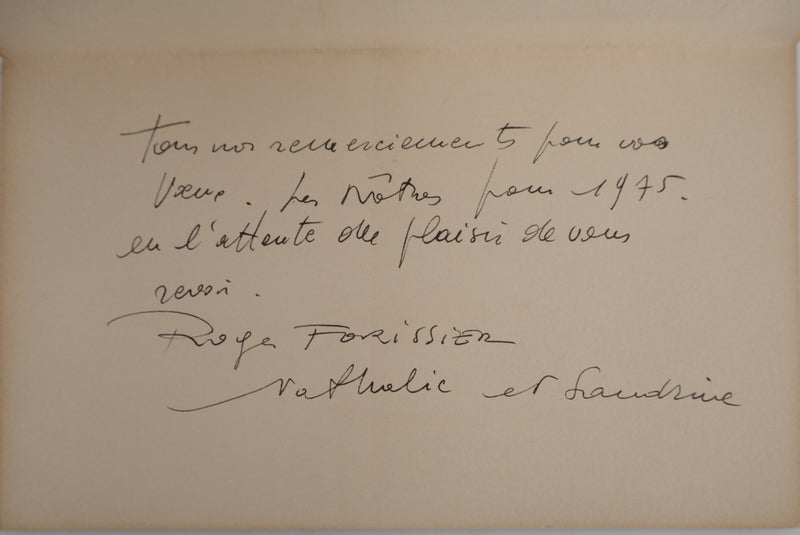 Tous nos remerciements pour vos
Vœux. Les Nôtres pour 1975.
en l'attente du plaisir de vous
revoir.
Roger FORISSIER
Nathalie et Sandrine